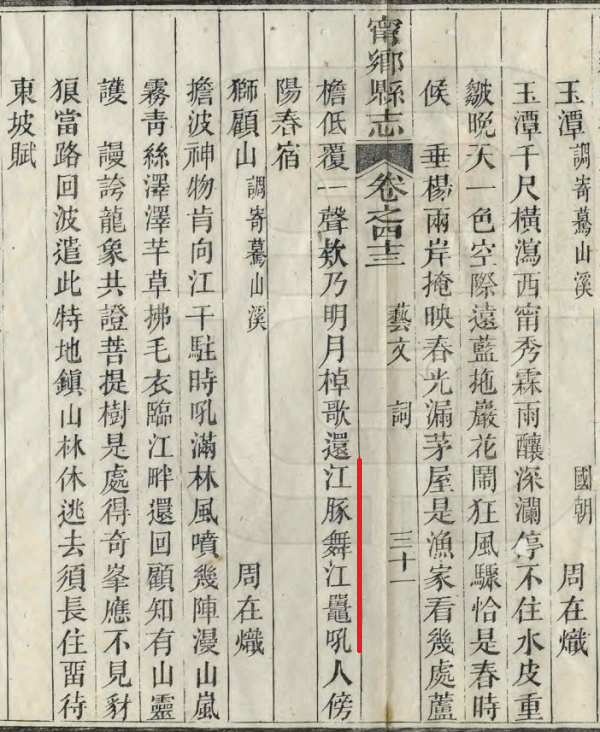 玉潭 調寄驀山溪 國朝 周在熾
玉潭千尺橫瀉西甯秀霖雨釀深瀾停不住水皮重
皺晚天一色空際遠藍拖巖花鬧狂風驟恰是春時
候 垂楊兩岸掩映春光漏茅屋是漁家看幾處蘆
甯鄉縣志 卷之四十三 藝文 詞 三十一
檐低覆一聲欸乃明月棹歌還江豚舞江鼉吼人傍
陽春宿
獅顧山 調寄驀山溪 周在熾
擔波神物肯向江干駐時吼滿林風噴幾陣漫山嵐
霧靑絲澤澤芊草拂毛衣臨江畔還回顧知有山靈
護 謾誇龍象共證菩提樹是處得奇峯應不見豺
狼當路回波遣此特地鎮山林休逃去須長住畱待
東坡賦